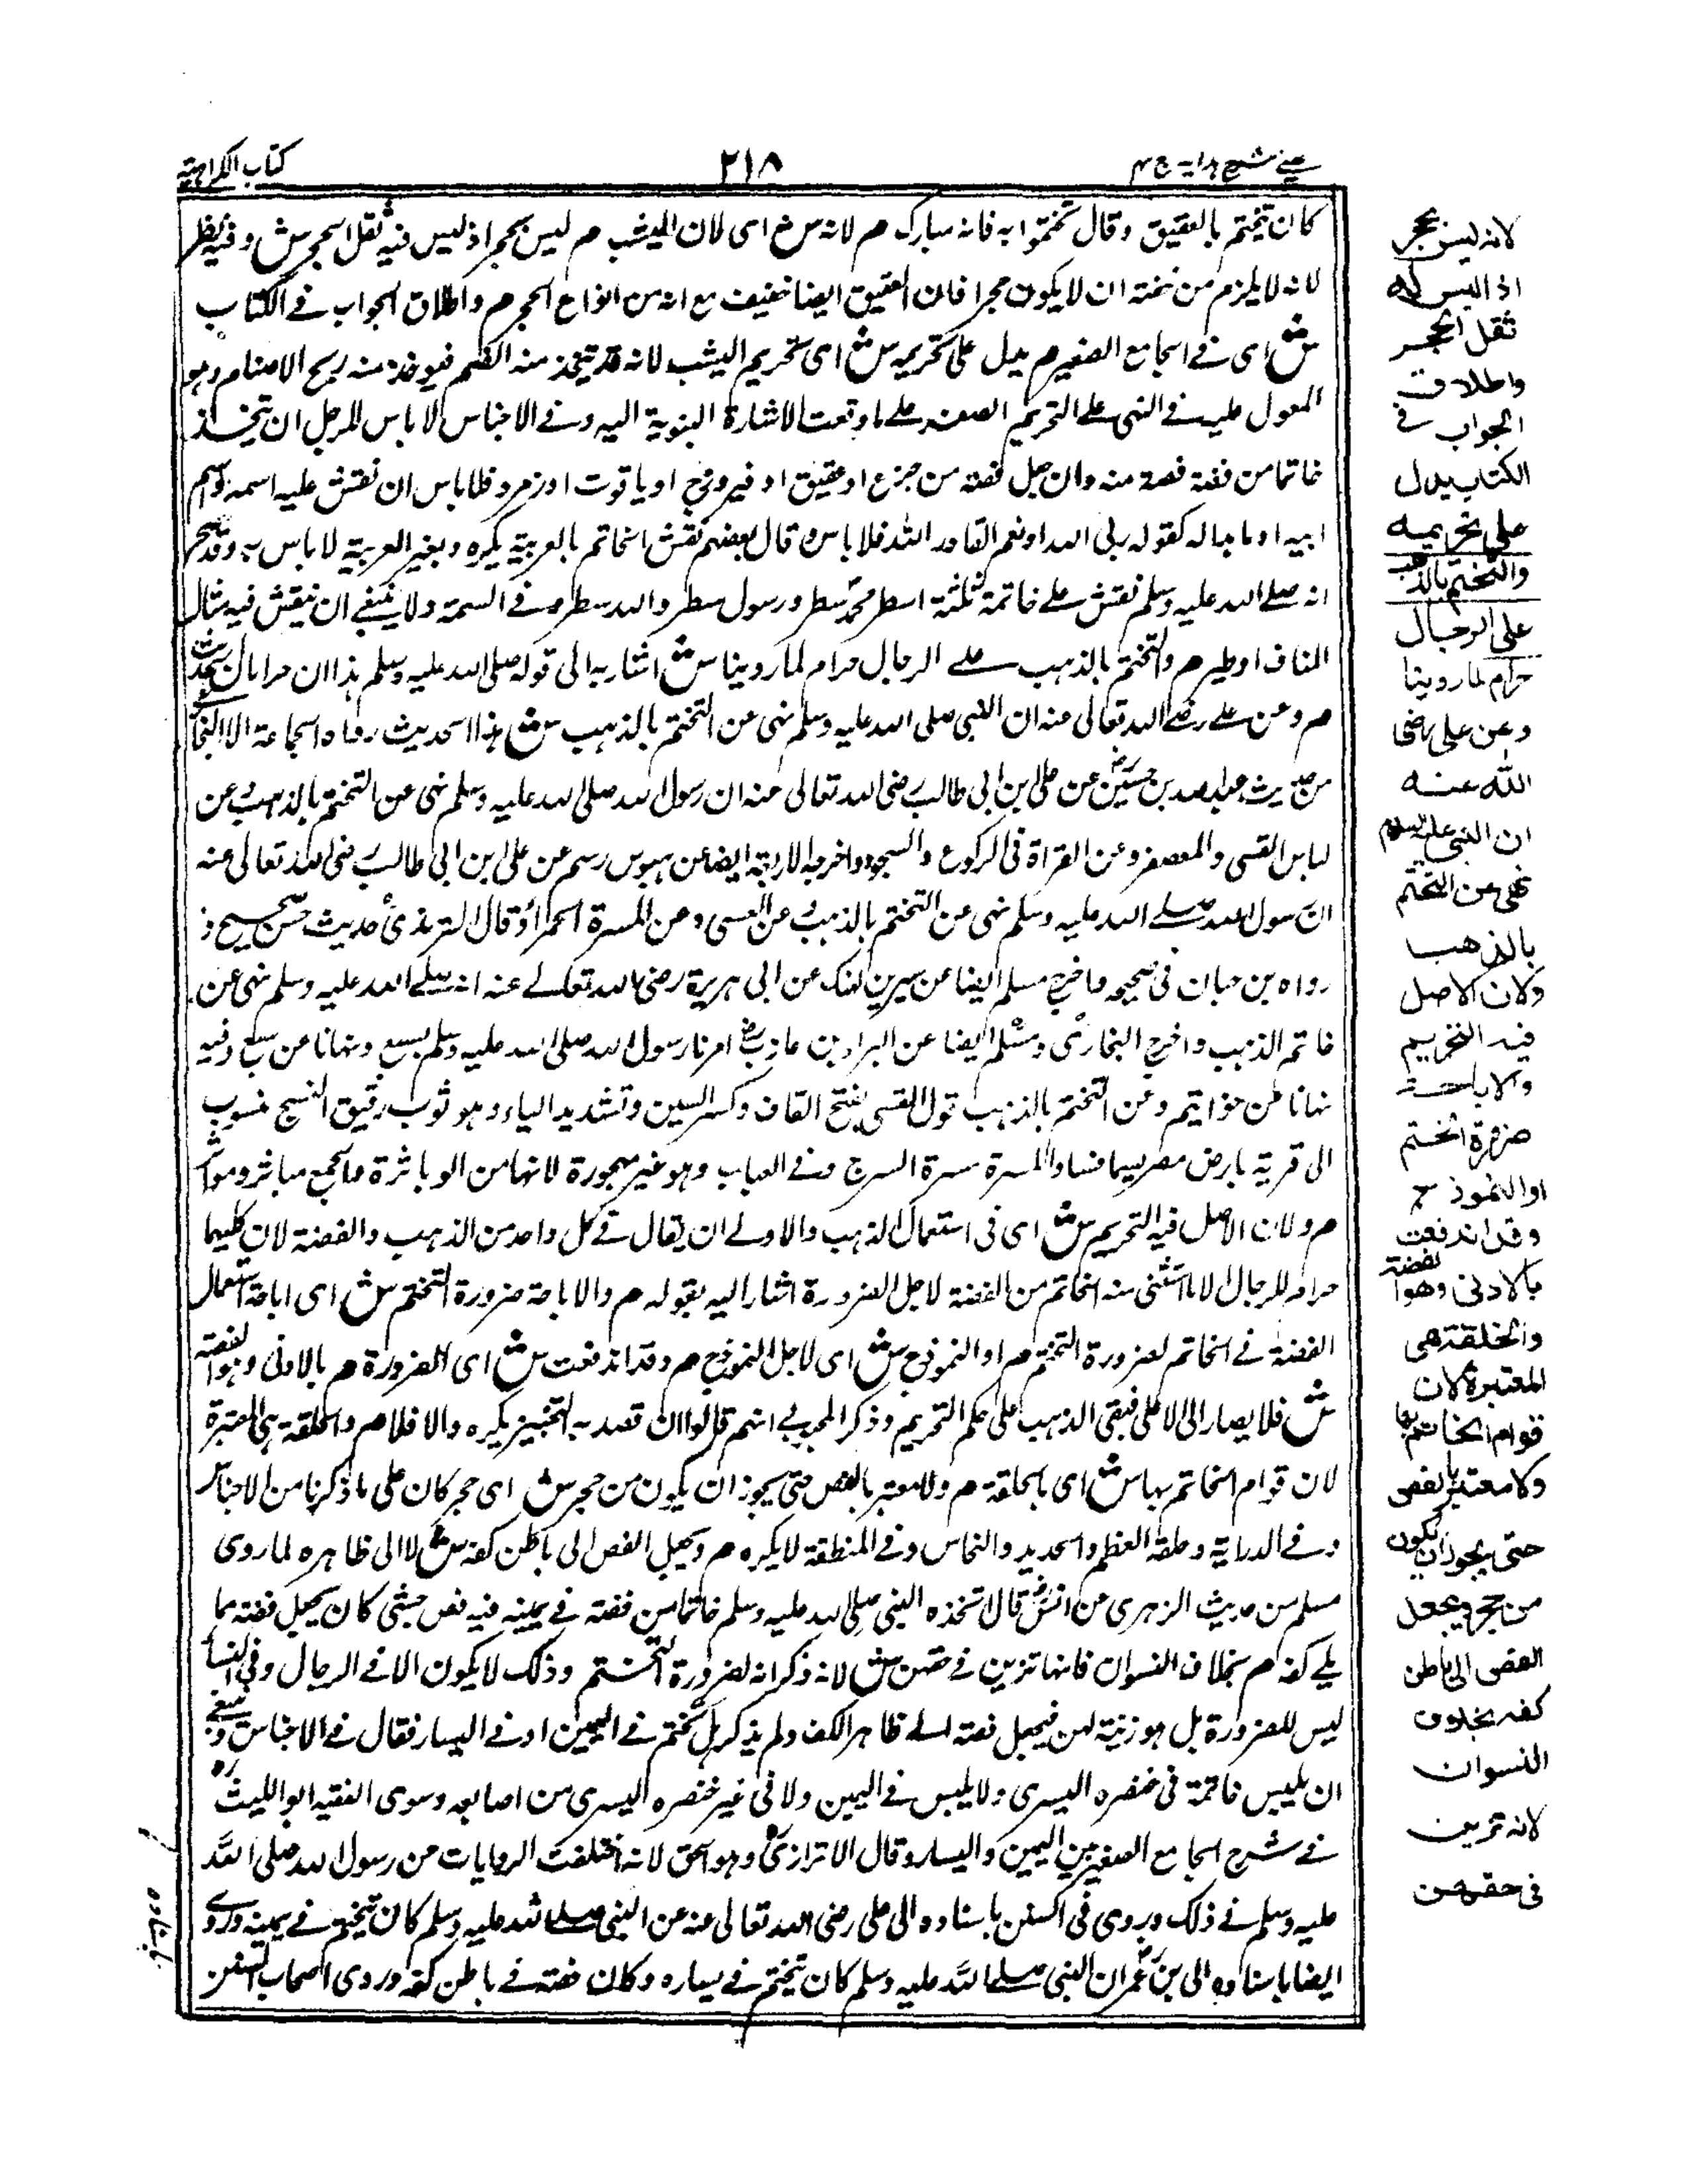 عيني شرح هداية ج ٤
٢١٨
كتاب الكراهية
كان يتختم بالعقيق وقال تختموا به فانه مبارك م لانه ش اى لان اليشب م ليس بحجر اذ ليس فيه ثقل الحجر ش وفيه نظر
لانه لا يلزم من خفته ان لا يكون حجرا فان العقيق ايضا خفيف مع انه من انواع الحجر م واطلاق الجواب في الكتاب
ش اى في الجامع الصغير م يدل على تحريمه ش اى تحريم اليشب لانه قد يتخذ منه الصنم فيوخذ منه ريح الاصنام وهو
المعول عليه في النهى على التحريم الصفر على ما وقعت الاشارة النبوية اليه وفي الاجناس لا باس للرجل ان يتخذ
خاتما من فضة فصه منه وان جعل فصه من جزع او عقيق او فيروزج او ياقوت او زمرد فلا باس ان نقش عليه اسمه واسم
ابيه او ما بدا له كقوله ربى الله او نعم القادر الله فلا باس وقال بعضهم نقش الخاتم بالعربية يكره وبغير العربية لا باس به وقد صح
انه صلى الله عليه وسلم نقش على خاتمه ثلثة اسطر محمد سطر ورسول سطر والله سطر و في السمة ولا ينبغى ان ينقش فيه مثال
او طير م والتختم بالذهب على الرجال حرام لما روينا ش اشار به الى قوله صلى الله عليه وسلم هذان حرامان الحديث
م وعن على رضى الله تعالى عنه ان النبى صلى الله عليه وسلم نهى عن التختم بالذهب ش هذا الحديث رواه الجماعة الا البخارى
من حديث عبد الله بن حسين عن على ابن ابى طالب رضى الله تعالى عنه ان رسول الله صلى الله عليه وسلم نهى عن التختم بالذهب وعن
لباس القسى والمعصفر وعن القراة فى الركوع والسجود واخرجه الاربعة ايضا عن عن على ابن ابى طالب رضى الله تعالى عنه
ان رسول الله صلى الله عليه وسلم نهى عن التختم بالذهب وعن القسى وعن الميسرة الحمراء وقال الترمذى حديث حسن صحيح و
رواه بن حبان فى صحيحه واخرج مسلم ايضا عن عن ابى هريرة رضى الله تعالى عنه انه صلى الله عليه وسلم نهى عن
خاتم الذهب واخرج البخارى ومسلم ايضا عن البراء بن عازب امرنا رسول الله صلى الله عليه وسلم بسبع ونهانا عن سبع وفيه
نهانا عن خواتيم وعن التختم بالذهب قوله القسى بفتح القاف وكسر السين وتشديد الياء وهو ثوب رقيق النسج منسوب
الى قرية بارض مصر والمسرة مسرة السرج وفي العباب وهو غير مهجورة لانها من الوباثرة والجمع مباثر ومواثر
م ولان الاصل فيه التحريم ش اى فى استعمال الذهب والاولى ان يقال فى كل واحد من الذهب والفضة لان كليهما
حرام للرجال الا ما استثنى منه الخاتم من الفضة لاجل الضرورة اشار اليه بقوله م والاباحة ضرورة التختم ش اى اباحة استعمال
الفضة في الخاتم لضرورة التختم م او النموذج ش اى لاجل النموذج م وقد اندفعت ش اى الضرورة م بالادنى وهو الفضة
ش فلا يصار الى الاعلى فبقى الذهب على حكم التحريم وذكر المحبوبى انهم قالوا ان قصد به التجبر يكره والا فلا م والحلقة هى المعتبرة
لان قوام الخاتم بها ش اى بالحلقة م ولا معتبر بالفص حتى يجوز ان يكون من حجر ش اى حجر كان على ما ذكرنا من الاجناس
وفي الدراية وحلقة العظم والحديد والنحاس وفي المنطقة لا يكره م ويجعل الفص الى باطن كفه ش لا الى ظاهره لما روى
مسلم من حديث الزهرى عن انس قال اتخذ النبى صلى الله عليه وسلم خاتما من فضة في يمينه فيه فص حبشى كان يجعل فصه مما
يلى كفه م بخلاف النسوان فانها تزين في حقهن ش لانه ذكر انه لضرورة التختم وذلك لا يكون الا في الرجال وفى النساء
ليس للضرورة بل هو زينة لهن فيجعل فصه الى ظاهر الكف ولم يذكر هل يختم في اليمين او في اليسار فقال في الاجناس وينبغى
ان يلبس خاتمه فى خنصره اليسرى ولا يلبس في اليمين ولا فى غير خنصره اليسرى من اصابعه وسوى الفقيه ابو الليث ره
في شرح الجامع الصغير بين اليمين واليسار وقال الاترازى وهو الحق لانه اختلفت الروايات من رسول الله صلى الله
عليه وسلم في ذلك وروى فى السنن باسناده الى على رضى الله تعالى عنه عن النبى صلى الله عليه وسلم كان يتختم في يمينه وروى
ايضا باسناده الى بن عمر ان النبى صلى الله عليه وسلم كان يتختم في يساره وكان فصه في باطن كفه وروى اصحاب السنن
لانه ليس بحجر
اذا ليس له
ثقل الحجر
واطلاق
الجواب فى
الكتاب يدل
على تحريمه
والتختم بالذهب
على الرجال
حرام لما روينا
وعن على رضى
الله عنه
ان النبى عليه السلام
نهى عن التختم
بالذهب
ولان الاصل
فيه التحريم
والاباحة
ضرورة الختم
او النموذج
وقد اندفعت
بالادنى وهو الفضة
والحلقة هى
المعتبرة لان
قوام الخاتم بها
ولا معتبر بالفص
حتى يجوز ان يكون
من حجر ويجعل
الفص الى باطن
كفه بخلاف
النسوان
لانه تزين
فى حقهن
باسناده